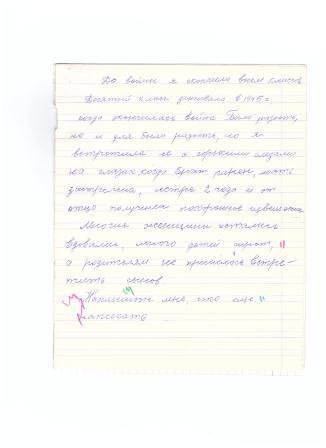 До войны я окончила восем классов
Десятый класс заканчивала в 1945 г.
когда окончилась война. Была радость,
но и для была радость, но я
встретила её с горькими слезами
на глазах когда брат ранен, мать
застрелена, сестре 2 года и от
отца получила похоронное извещение
Многие женщины остались
вдовами, много детей сирот,
а родителям не пришлось встре-
тить сынов.
Напишите мне, что еще
написать